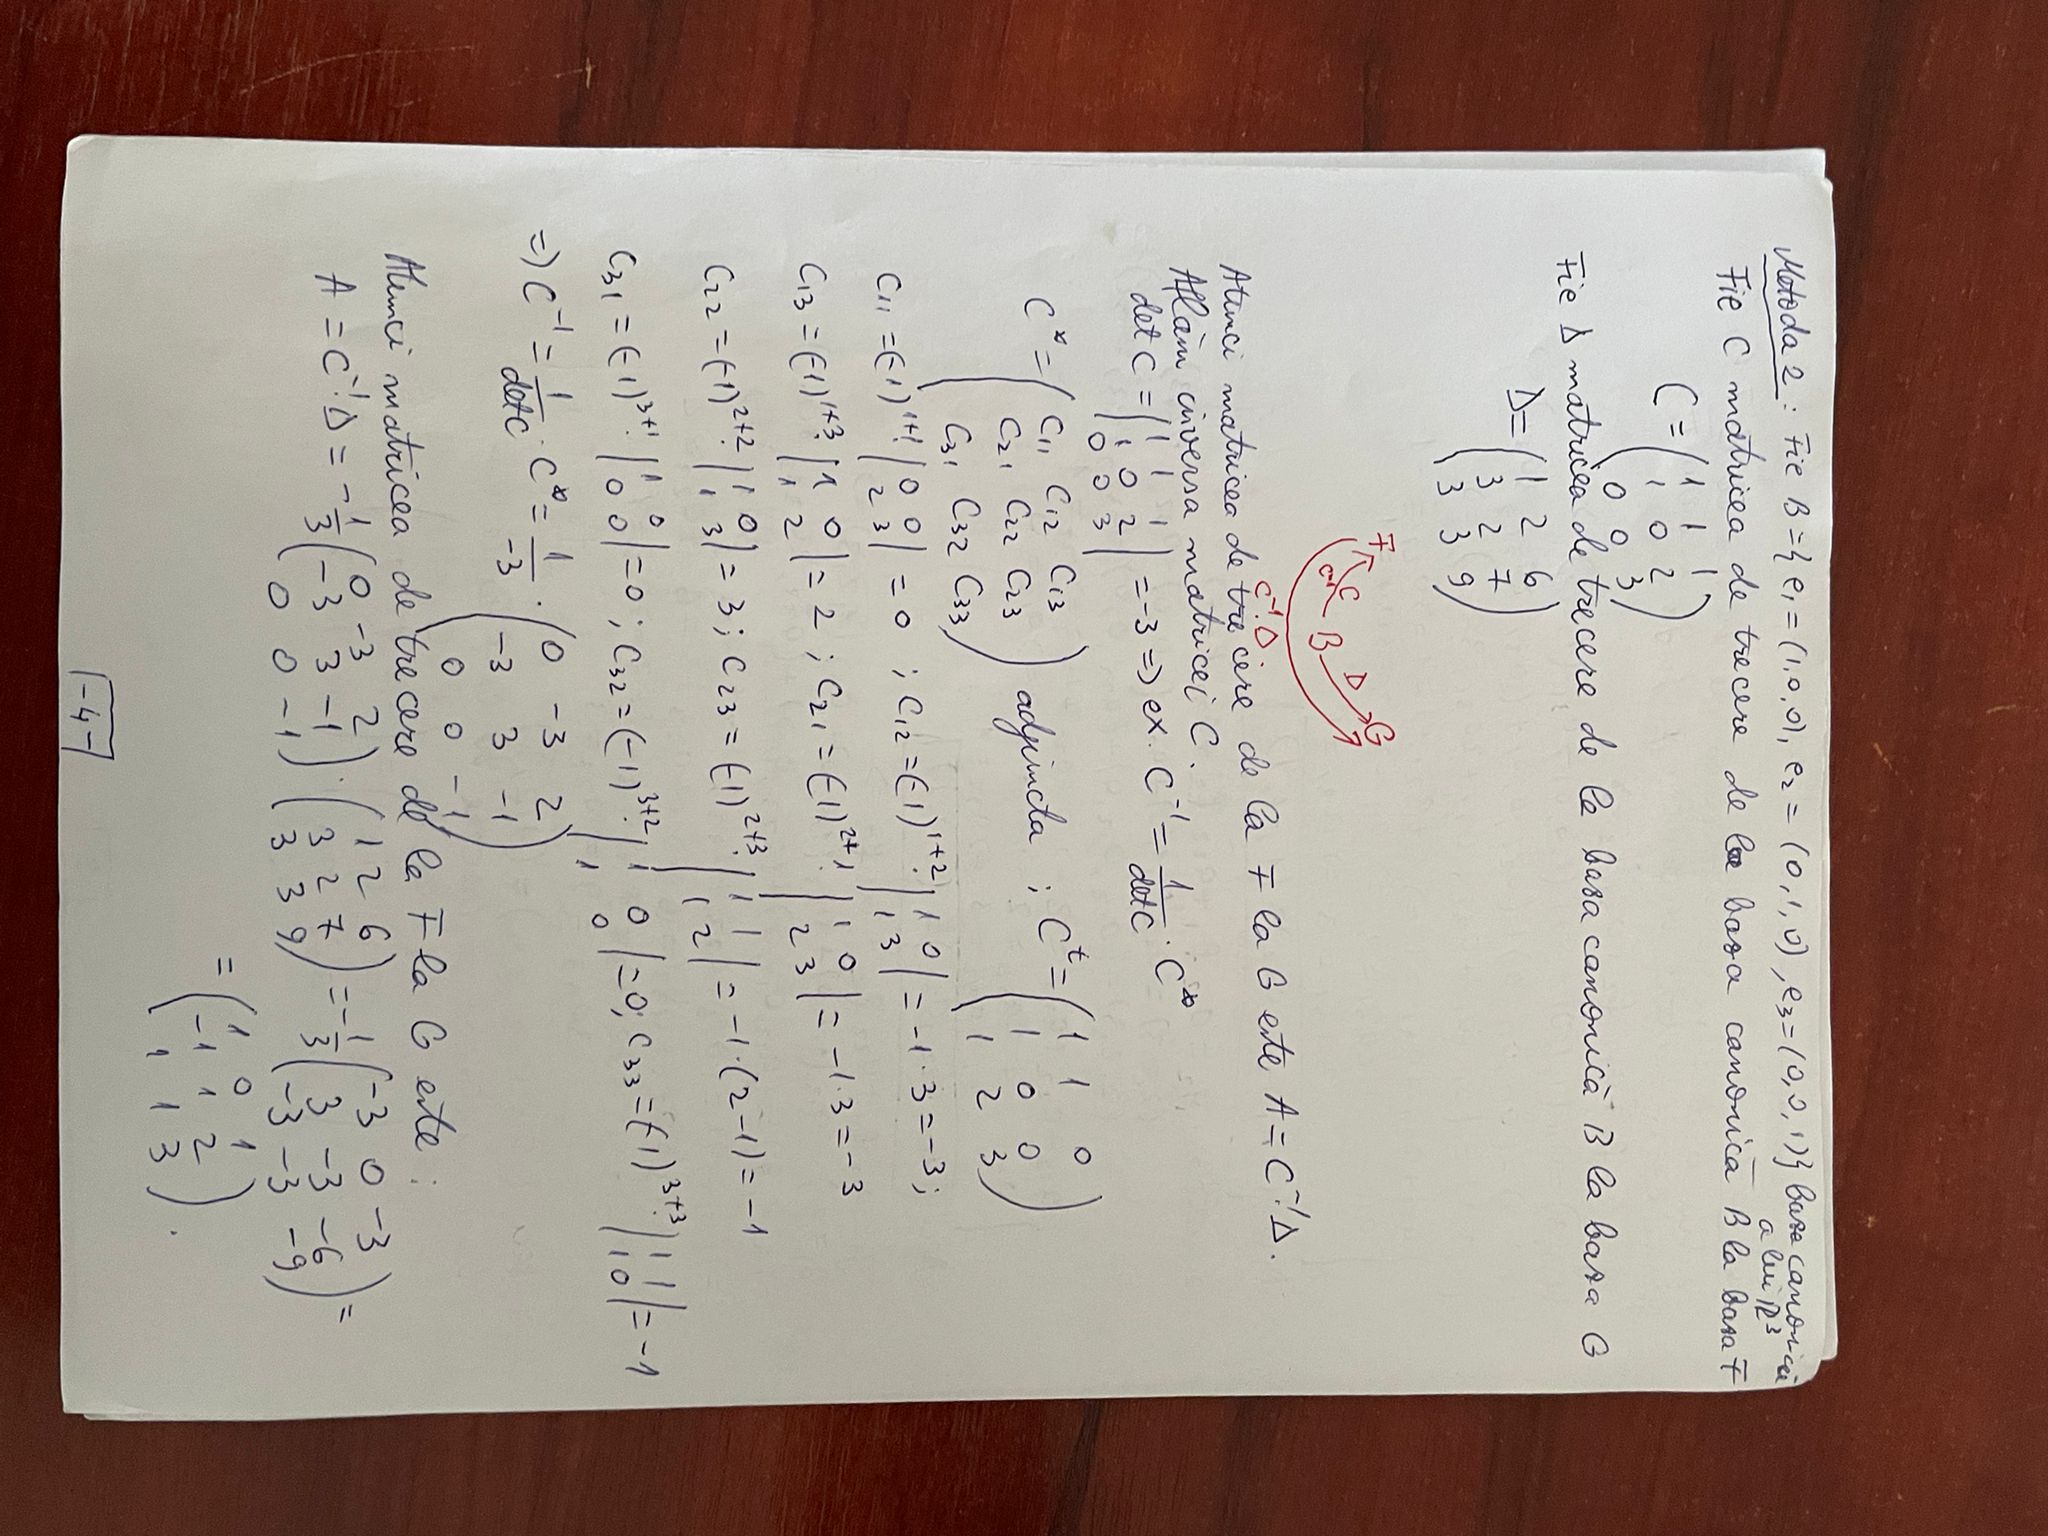 Metoda 2: Fie B={e₁=(1,0,0), e₂=(0,1,0), e₃=(0,0,1)} baza canonică
a lui ℝ³
Fie C matricea de trecere de la baza canonică B la baza F
C = (1 1 1
1 0 2
0 0 3)
Fie D matricea de trecere de la baza canonică B la baza G
D = (1 2 6
3 2 7
3 3 9)
F C B D G
C⁻¹
C⁻¹·D
Atunci matricea de trecere de la F la G este A=C⁻¹·D.
Aflăm inversa matricei C.
det C = |1 1 1
1 0 2
0 0 3| = -3 => ex. C⁻¹ = 1/detC · C*
C* = (C₁₁ C₁₂ C₁₃
C₂₁ C₂₂ C₂₃
C₃₁ C₃₂ C₃₃) adjuncta ; Cᵗ = (1 1 0
1 0 0
1 2 3)
C₁₁ = (-1)¹⁺¹·|0 0
2 3| = 0 ; C₁₂ = (-1)¹⁺²·|1 0
1 3| = -1·3 = -3;
C₁₃ = (-1)¹⁺³·|1 0
1 2| = 2 ; C₂₁ = (-1)²⁺¹·|1 0
2 3| = -1·3 = -3
C₂₂ = (-1)²⁺²·|1 0
1 3| = 3 ; C₂₃ = (-1)²⁺³·|1 1
1 2| = -1·(2-1) = -1
C₃₁ = (-1)³⁺¹·|1 0
0 0| = 0 ; C₃₂ = (-1)³⁺²·|1 0
1 0| = 0; C₃₃ = (-1)³⁺³·|1 1
1 0| = -1
=> C⁻¹ = 1/detC · C* = 1/-3 · (0 -3 2
-3 3 -1
0 0 -1)
Atunci matricea de trecere de la F la G este :
A = C⁻¹·D = -1/3 (0 -3 2
-3 3 -1
0 0 -1) · (1 2 6
3 2 7
3 3 9) = -1/3 (-3 0 -3
3 -3 -6
-3 -3 -9) =
= (1 0 1
-1 1 2
1 1 3).
-4-